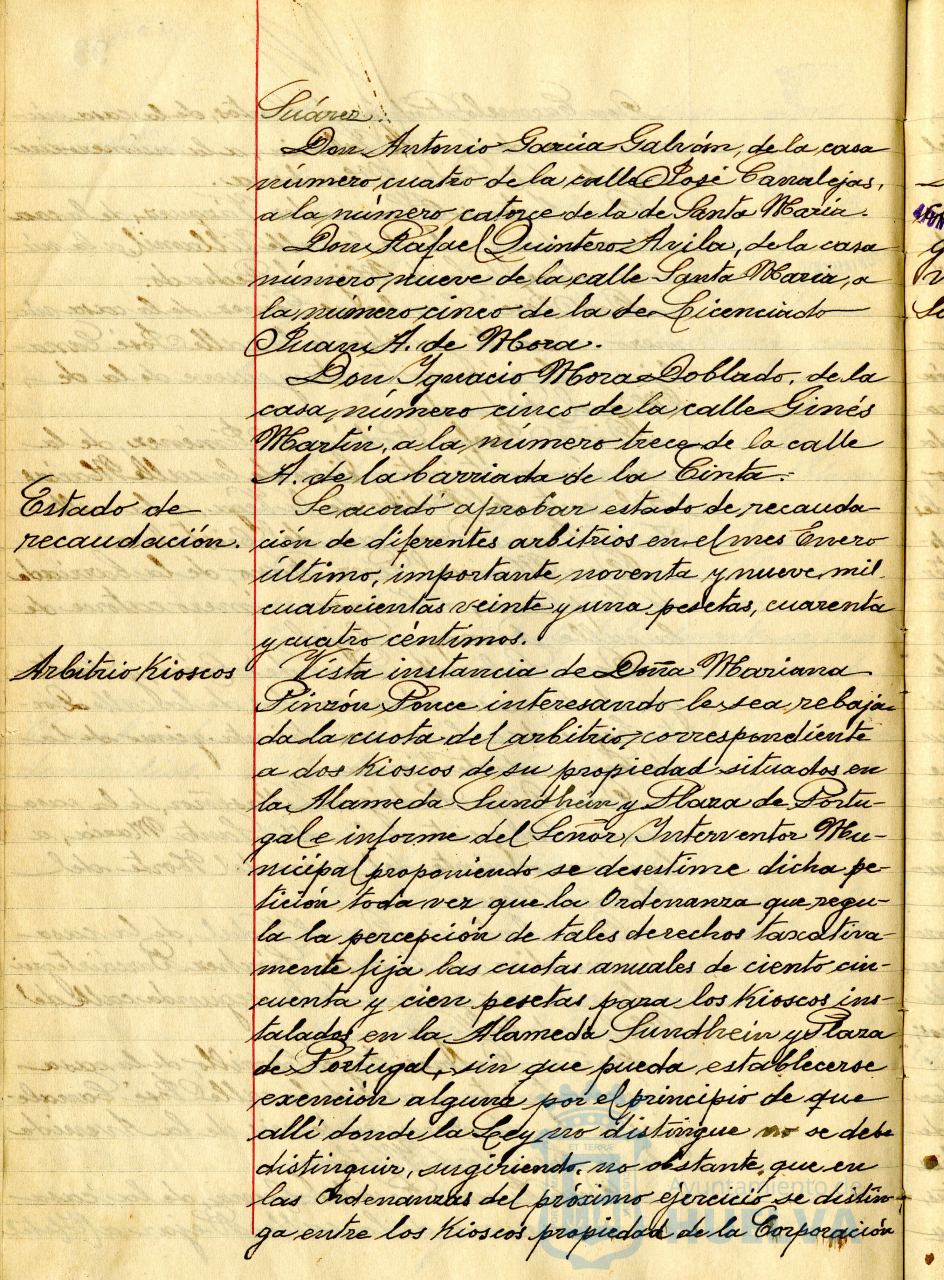 Suárez.
Don Antonio García Galván, de la casa
número cuatro de la calle José Canalejas,
a la número catorce de la de Santa María.
Don Rafael Quintero Avila, de la casa
número nueve de la calle Santa María, a
la número cinco de la de Licenciado
Juan A. de Mora.
Don Ignacio Mora Doblado, de la
casa número cinco de la calle Ginés
Martín, a la número trece de la calle
A. de la barriada de la Cinta.
Estado de
recaudación.
Se acordó aprobar estado de recauda-
ción de diferentes arbitrios en el mes Enero
último, importante noventa y nueve mil
cuatrocientas veinte y una pesetas, cuarenta
y cuatro céntimos.
Arbitrio Kioscos
Vista instancia de Doña Mariana
Pinzón Ponce interesando le sea rebaja-
da la cuota del arbitrio, correspondiente
a dos Kioscos de su propiedad situados en
la Alameda Sundhein y Plaza de Portu-
gal e informe del Señor Interventor Mu-
nicipal proponiendo se desestime dicha pe-
tición toda vez que la Ordenanza que regu-
la la percepción de tales derechos taxativa-
mente fija las cuotas anuales de ciento cin-
cuenta y cien pesetas para los Kioscos ins-
talados en la Alameda Sundhein y Plaza
de Portugal, sin que pueda establecerse
exención alguna por el principio de que
allí donde la Ley no distingue no se debe
distinguir, sugiriendo, no obstante, que en
las Ordenanzas del próximo ejercicio se distin-
ga entre los Kioscos propiedad de la Corporación
Ayuntamiento de
HUELVA